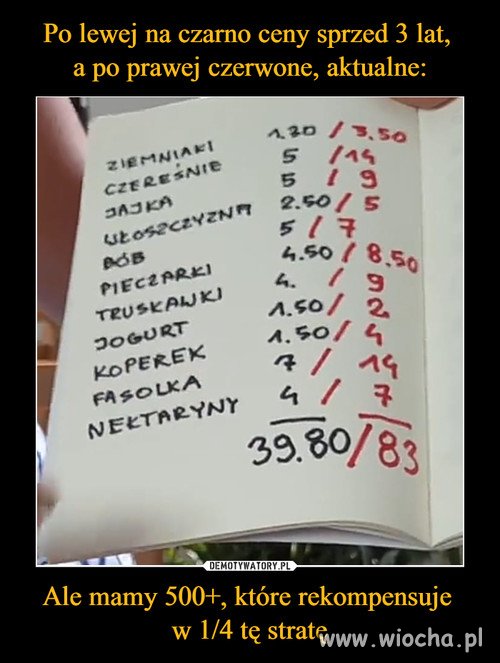 Po lewej na czarno ceny sprzed 3 lat,
a po prawej czerwone, aktualne:
ZIEMNIAKI 1.80 / 3.50
CZEREŚNIE 5 / 14
JAJKA 5 / 9
WŁOSZCZYZNA 2.50 / 5
BÓB 5 / 7
PIECZARKI 4.50 / 8.50
TRUSKAWKI 4. / 9
JOGURT 1.50 / 2
KOPEREK 1.50 / 4
FASOLKA 7 / 14
NEKTARYNY 4 / 7
39.80/83
DEMOTYWATORY.PL
Ale mamy 500+, które rekompensuje
w 1/4 tę stratę
www.wiocha.pl